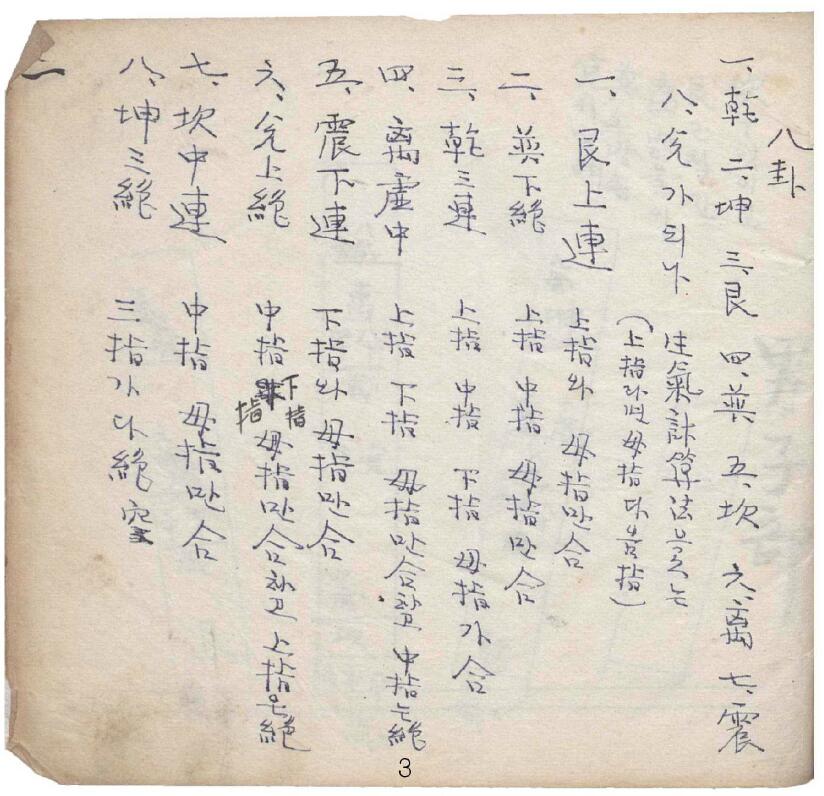 八卦
一、乾 二、坤 三、艮 四、巽 五、坎 六、離 七、震
八、兌가되나 生氣計算法
(上指라면 母指다음指)
一、艮上連 上指와 母指만 合
二、巽下絶 上指 中指 母指만 合
三、乾三連 上指 中指 下指 母指가 合
四、離虛中 上指 下指 母指만 合하고 中指는 絶
五、震下連 下指와 母指만 合
六、兌上絶 中指 下指 母指만 合하고 上指은 絶
七、坎中連 中指 母指만 合
八、坤三絶 三指가 다 絶空
3